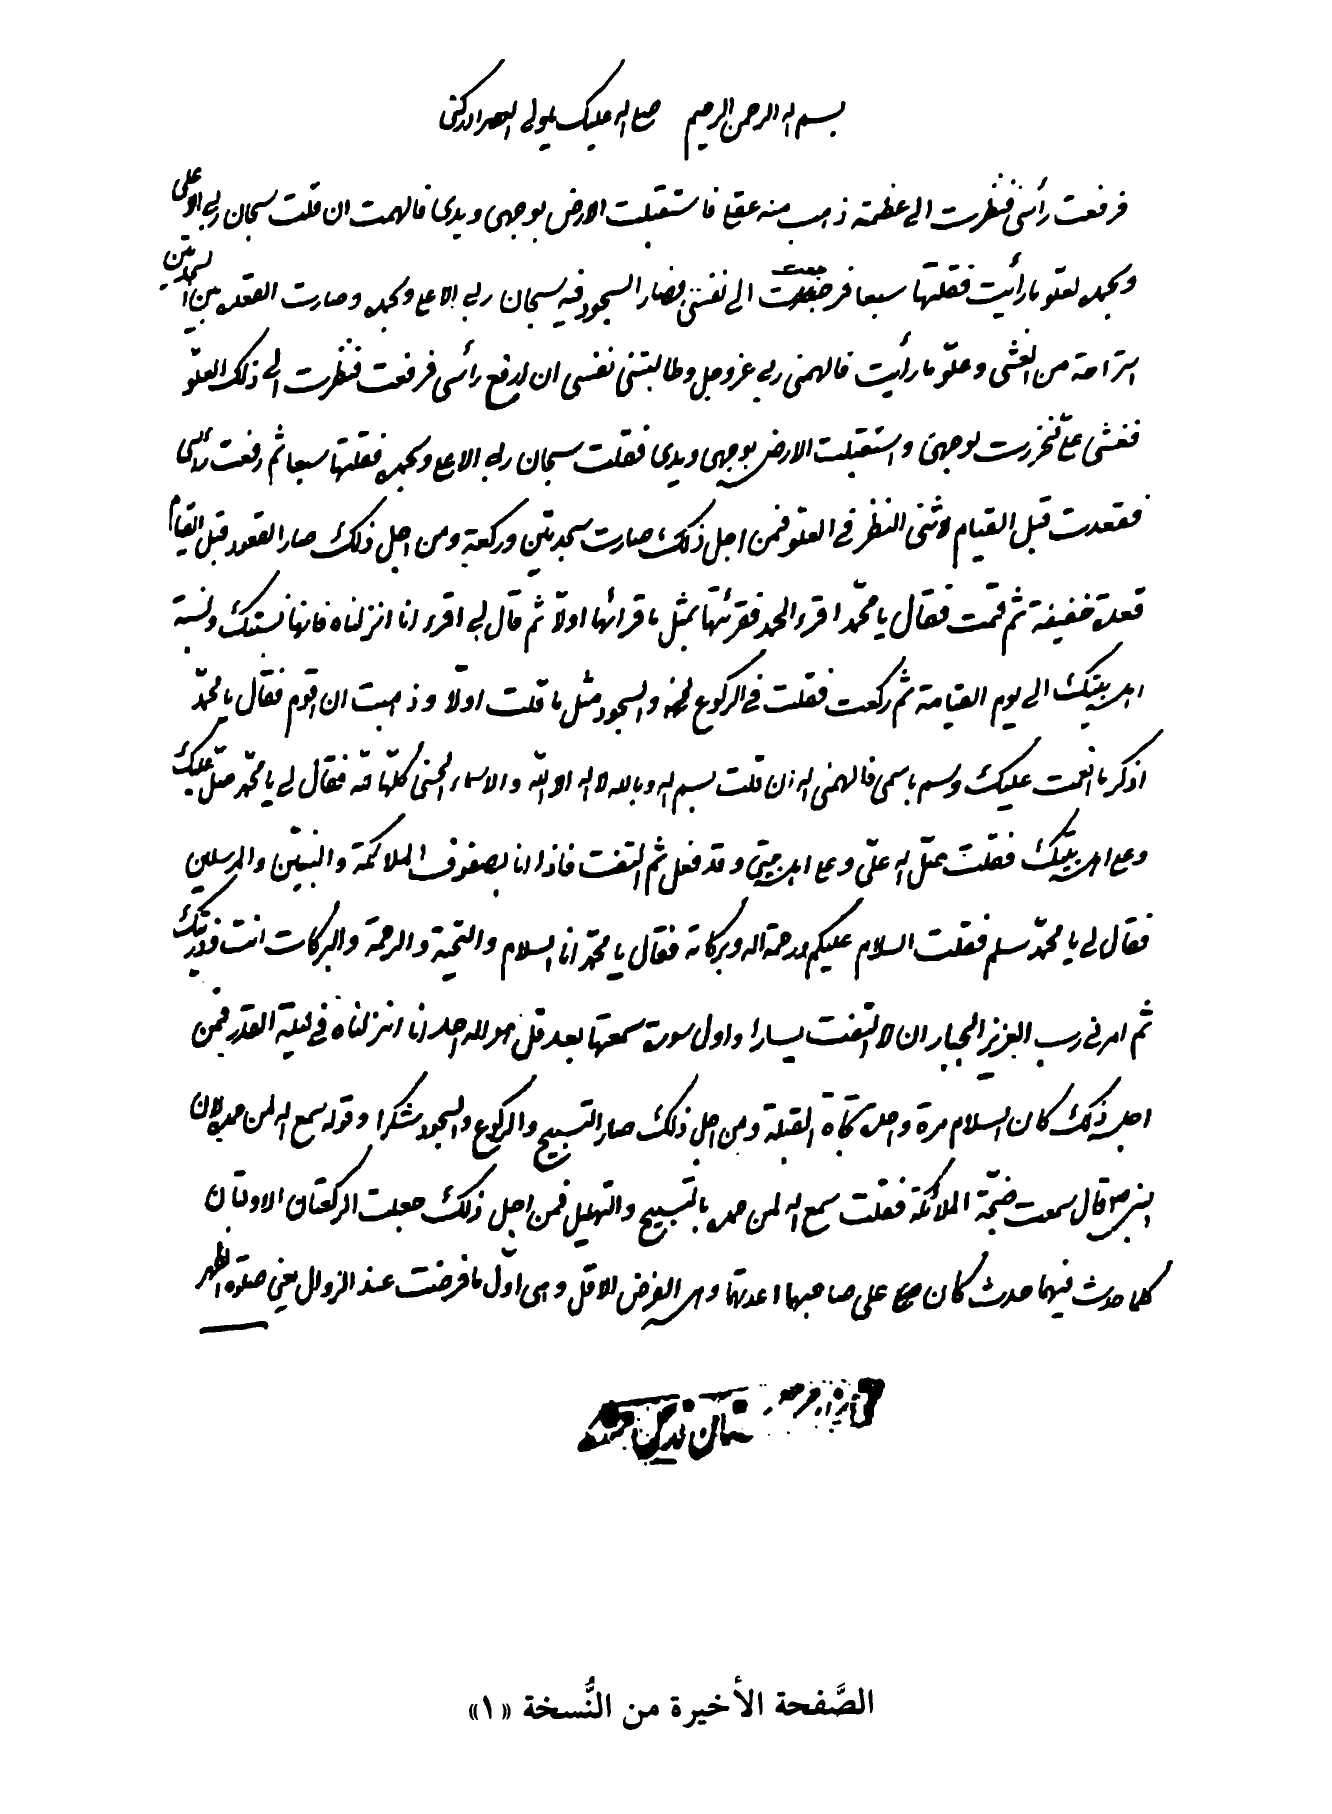 بسم اله الرحمن الرحيم صلى اله عليك يا مولى العصر ادركنى
فرفعت رأسى فنظرت الى عظمة ذهب منه عقلى فاستقبلت الارض بوجهى ويدى فالهمت ان قلت سبحان ربى الاعلى
وبحمده لعلو ما رأيت فقلتها سبعا فرجعت الى نفسى فصار السجود فيه سبحان ربى الاعلى وبحمده وصارت القعده بين السجدتين
استراحة من الغشى وعلو ما رأيت فالهمنى ربى عز وجل وطالبتنى نفسى ان ارفع رأسى فرفعت فنظرت الى ذلك العلوّ
فغشى علىّ فخررت لوجهى واستقبلت الارض بوجهى ويدى فقلت سبحان ربى الاعلى وبحمده فقلتها سبعا ثم رفعت رأسى
فقعدت قبل القيام لاثنى النظر فى العلو فمن اجل ذلك صارت سجدتين وركعة ومن اجل ذلك صار القعود قبل القيام
قعدة خفيفة ثم قمت فقال يا محمّد اقرء الحمد فقرئتها بمثل ما قرائها اولاّ ثم قال لى اقرء انا انزلناه فانها نسبتك ونسبة
اهل بيتك الى يوم القيامة ثم ركعت فقلت فى الركوع والسجود مثل ما قلت اولاّ وذهبت ان اقوم فقال يا محمّد
اذكر ما انعمت عليك وسم باسمى فالهمنى اله ان قلت بسم اله وبالله لا اله الا اللّه والاسماء الحسنى كلّها للّه فقال لى يا محمّد صلّ عليك
وعلى اهل بيتك فقلت صلّى اله علىّ وعلى اهل بيتى وقد فعل ثم التفت فاذا انا بصفوف الملائكة والنبيّين والمرسلين
فقال لى يا محمّد سلم فقلت السلام عليكم ورحمة اله وبركاته فقال يا محمّد انا السلام والتحية والرحمة والبركات انت وذريّتك
ثم امرنى رب العزيز الجبار ان لا التفت يسارا واول سورة سمعتها بعد قل هو الله احد انا انزلناه فى ليلة القدر فمن
اجل ذلك كان السلام مرة واحدة تجاه القبلة ومن اجل ذلك صار التسبيح والركوع والسجود شكرا وقوله سمع اله لمن حمده لان
النبى ص قال سمعت ضجّة الملائكة فقلت سمع اله لمن حمده بالتسبيح والتهليل فمن اجل ذلك جعلت الركعتان الاولتان
كلما حدث فيهما حدث كان على صاحبها اعدتها وهى الفرض الاوّل وهى اوّل ما فرضت عند الزوال يعنى صلوة الظهر
الصَّفحة الأخيرة من النُّسخة «١»